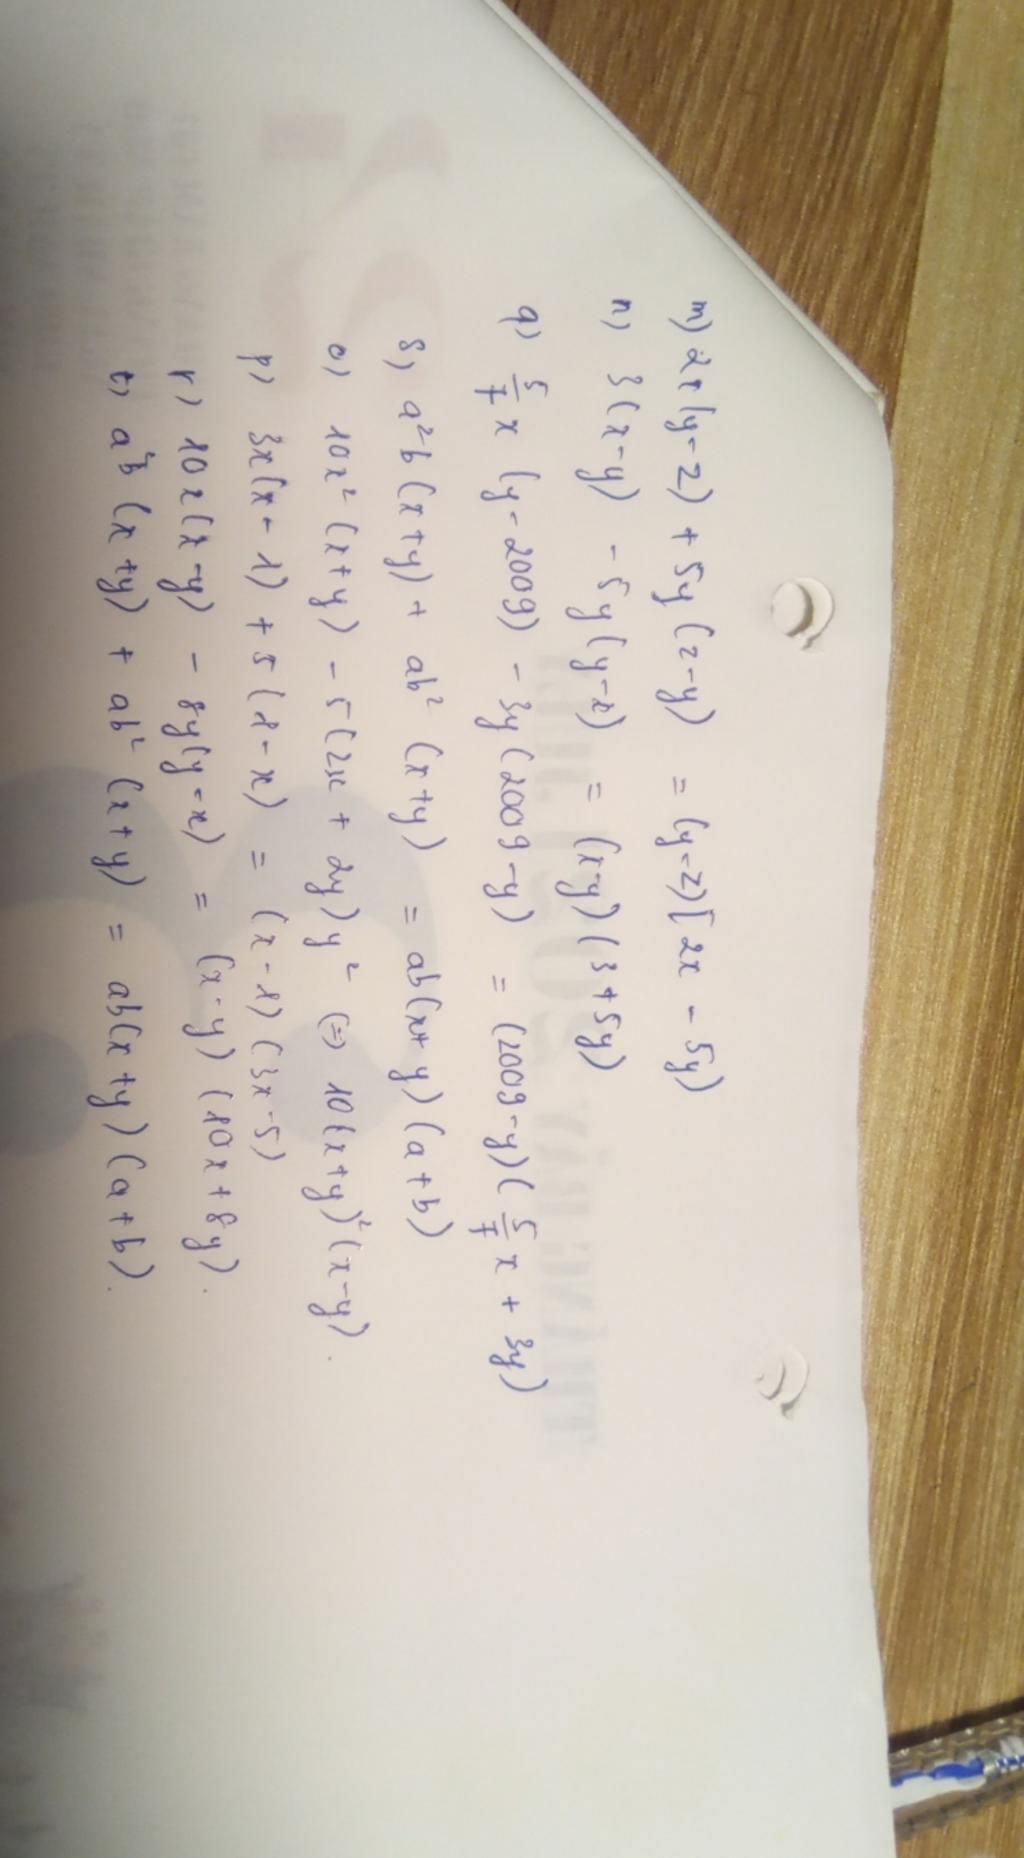 m) 2x(y-z) + 5y(z-y) = (y-z)[2x - 5y)
n) 3(x-y) - 5y(y-x) = (x-y)(3+5y)
q) 5/7 x (y-2009) - 3y(2009-y) = (2009-y)(5/7 x + 3y)
s) a²b(x+y) + ab²(x+y) = ab(x+y)(a+b)
o) 10x²(x+y) - 5(2x + 2y)y² (=) 10(x+y)²(x-y).
p) 3x(x-1) + 5(1-x) = (x-1)(3x-5)
r) 10x(x-y) - 8y(y-x) = (x-y)(10x+8y).
t) a²b(x+y) + ab²(x+y) = ab(x+y)(a+b).